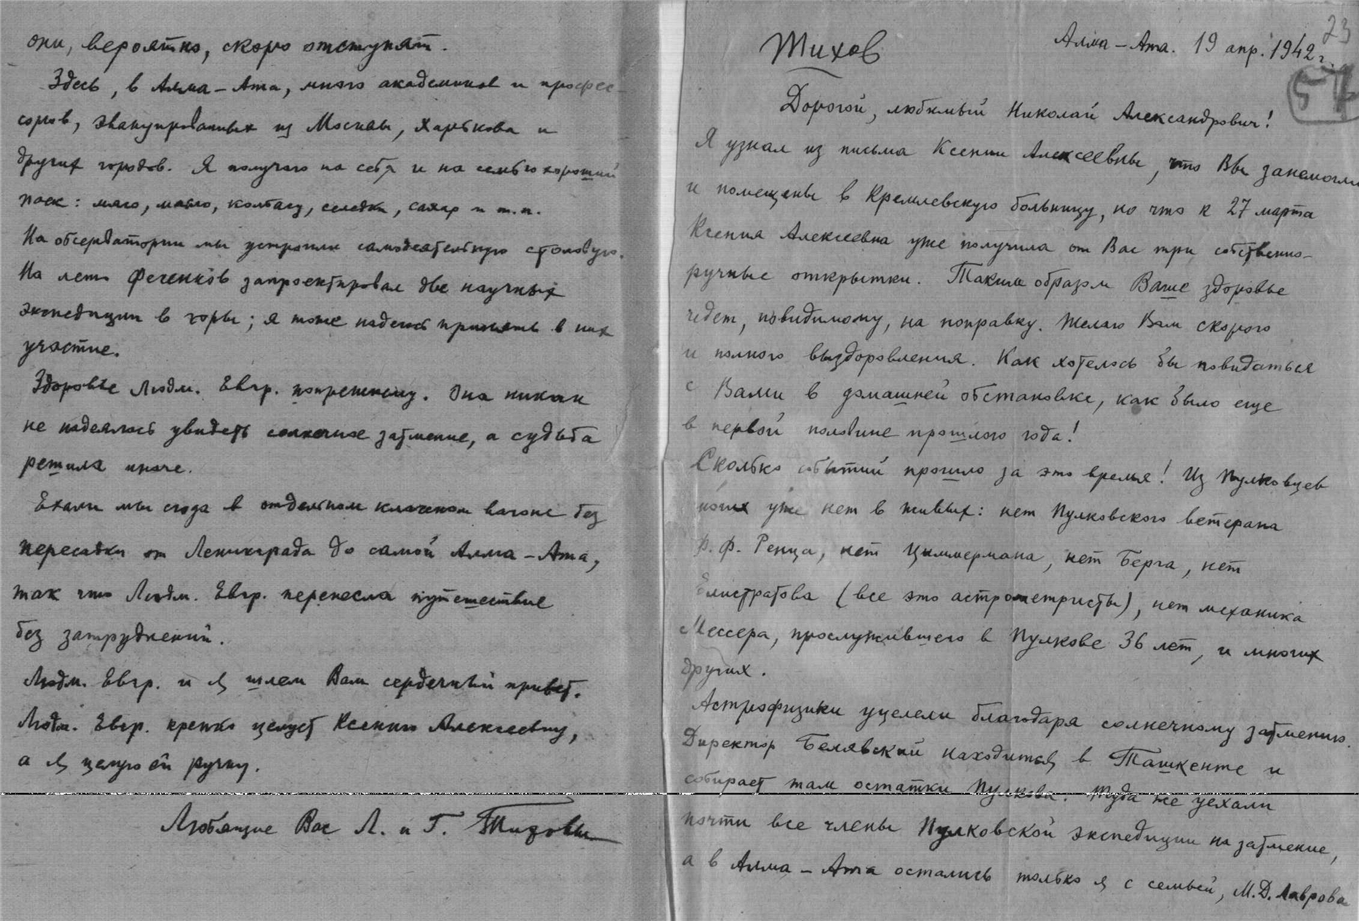 23
Тихов
Алма-Ата. 19 апр. 1942 г.
57
Дорогой, любимый Николай Александрович!
Я узнал из письма Ксении Алексеевны, что Вы занемогли
и помещены в Кремлевскую больницу, но что к 27 марта
Ксения Алексеевна уже получила от Вас три собственно-
ручные открытки. Таким образом Ваше здоровье
идет, повидимому, на поправку. Желаю Вам скорого
и полного выздоровления. Как хотелось бы повидаться
с Вами в домашней обстановке, как было еще
в первой половине прошлого года!
Сколько событий прошло за это время! Из Пулковцев
многих уже нет в живых: нет Пулковского ветерана
Ф. Ф. Ренца, нет Циммермана, нет Берга, нет
Елистратова (все это астрометристы), нет механика
Мессера, прослужившего в Пулкове 36 лет, и многих
других.
Астрофизики уцелели благодаря солнечному затмению.
Директор Белявский находится в Ташкенте и
собирает там остатки Пулкова. Туда же уехали
почти все члены Пулковской экспедиции на затмение,
а в Алма-Ата остались только я с семьей, М.Д. Лаврова
они, вероятно, скоро отступят.
Здесь, в Алма-Ата, много академиков и профес-
соров, эвакуированных из Москвы, Харькова и
других городов. Я получаю на себя и на семью хороший
паек: мясо, масло, колбасу, селедки, сахар и т.п.
На обсерватории мы устроили самодеятельную столовую.
На лето Фесенков запроектировал две научных
экспедиции в горы; я тоже надеюсь принять в них
участие.
Здоровье Людм. Евгр. попрежнему. Она никак
не надеялась увидеть солнечное затмение, а судьба
решила иначе.
Ехали мы сюда в отдельном классном вагоне без
пересадки от Ленинграда до самой Алма-Ата,
так что Людм. Евгр. перенесла путешествие
без затруднений.
Людм. Евгр. и я шлем Вам сердечный привет.
Людм. Евгр. крепко целует Ксению Алексеевну,
а я целую ей ручку.
Любящие Вас Л. и Г. Тиховы